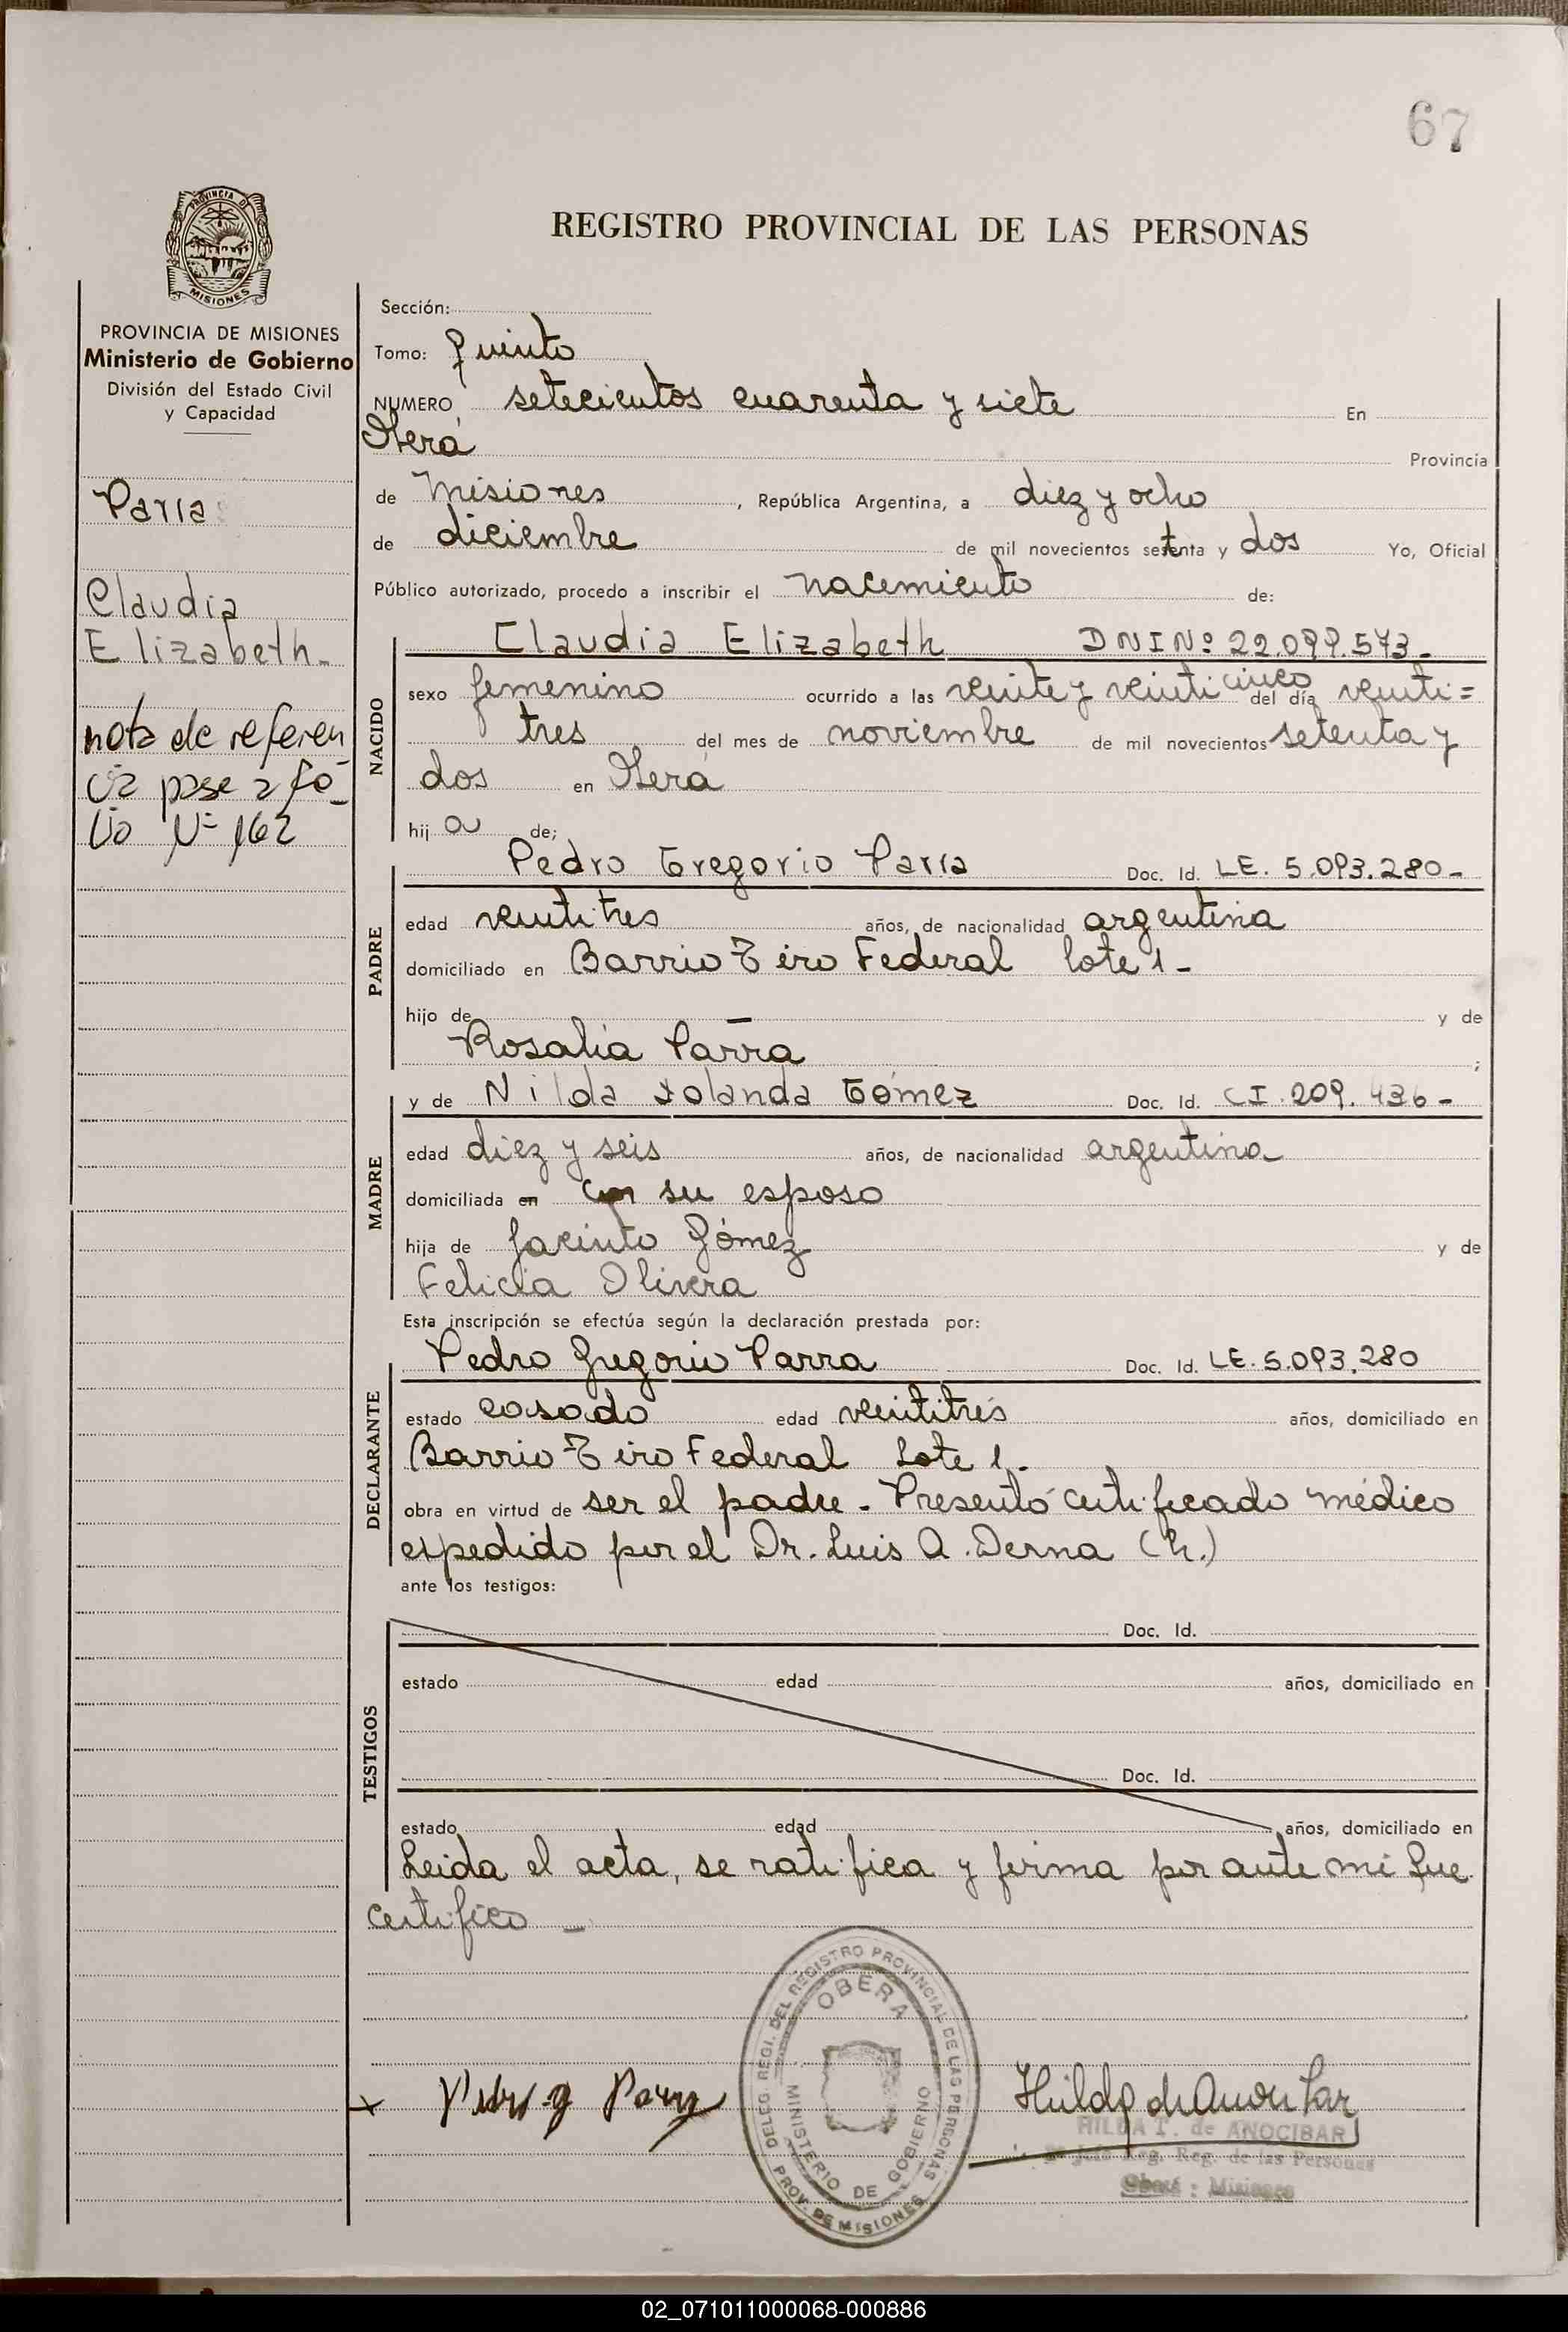 67
PROVINCIA DE
MISIONES
REGISTRO PROVINCIAL DE LAS PERSONAS
PROVINCIA DE MISIONES
Ministerio de Gobierno
División del Estado Civil
y Capacidad
Parra
Claudia
Elizabeth.-
nota de referen
cia pase a fo-
lio Nº 162
Sección:
Tomo: Quinto
NUMERO setecientos cuarenta y siete En
Oberá Provincia
de Misiones, República Argentina, a diez y ocho
de diciembre de mil novecientos setenta y dos Yo, Oficial
Público autorizado, procedo a inscribir el nacimiento de:
NACIDO
Claudia Elizabeth DNI Nº 22.099.573.-
sexo femenino ocurrido a las veinte y veinticinco del día veinti=
tres del mes de noviembre de mil novecientos setenta y
dos en Oberá
hija de;
PADRE
Pedro Gregorio Parra Doc. Id. LE. 5.093.280-
edad veintitres años, de nacionalidad argentina
domiciliado en Barrio Tiro Federal lote 1-
hijo de - y de
Rosalia Parra ;
MADRE
y de Nilda Iolanda Gómez Doc. Id. CI. 209.436-
edad diez y seis años, de nacionalidad argentina
domiciliada en con su esposo
hija de Jacinto Gómez y de
Felicia Olivera
Esta inscripción se efectúa según la declaración prestada por:
DECLARANTE
Pedro Gregorio Parra Doc. Id. LE. 5.093.280
estado casado edad veintitrés años, domiciliado en
Barrio Tiro Federal Lote 1.
obra en virtud de ser el padre. Presentó certificado médico
expedido por el Dr. Luis A. Derna (h.)
ante los testigos:
TESTIGOS
Doc. Id.
estado edad años, domiciliado en
Doc. Id.
estado edad años, domiciliado en
Leida el acta, se ratifica y firma por ante mi que
certifico -
DELEG. REGI. DEL REGISTRO PROVINCIAL DE LAS PERSONAS
OBERA
MINISTERIO DE GOBIERNO
PROV. DE MISIONES
x Pedro G Parra
Hilda de Anocibar
HILDA T. de ANOCIBAR
Reg. de las Personas
Oberá : Misiones
02_071011000068-000886